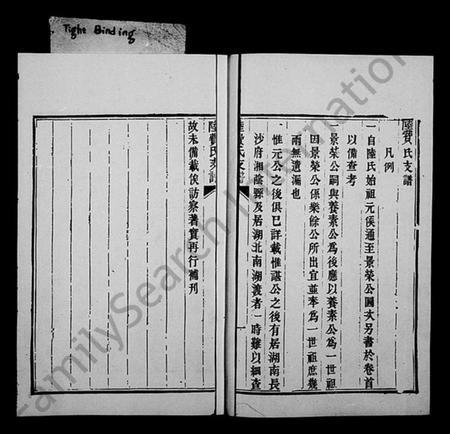 Tight Binding
陸費氏支譜
凡例
一自陸氏始祖元侯通至景榮公圖攵另書於卷首
以備查考
景榮公嗣與養素公為後應以養素公為一世祖
因景榮公係樂餘公所出宜並奉為一世祖庶幾
兩無遺漏也
惟元公之後俱已詳載惟諶公之後有居湖南長
沙府湘陰縣及居湖北南湖渡者一時難以細查
陸費氏支譜
陸費氏支譜
故未備載俟訪察著實再行補刊
FamilySearch International